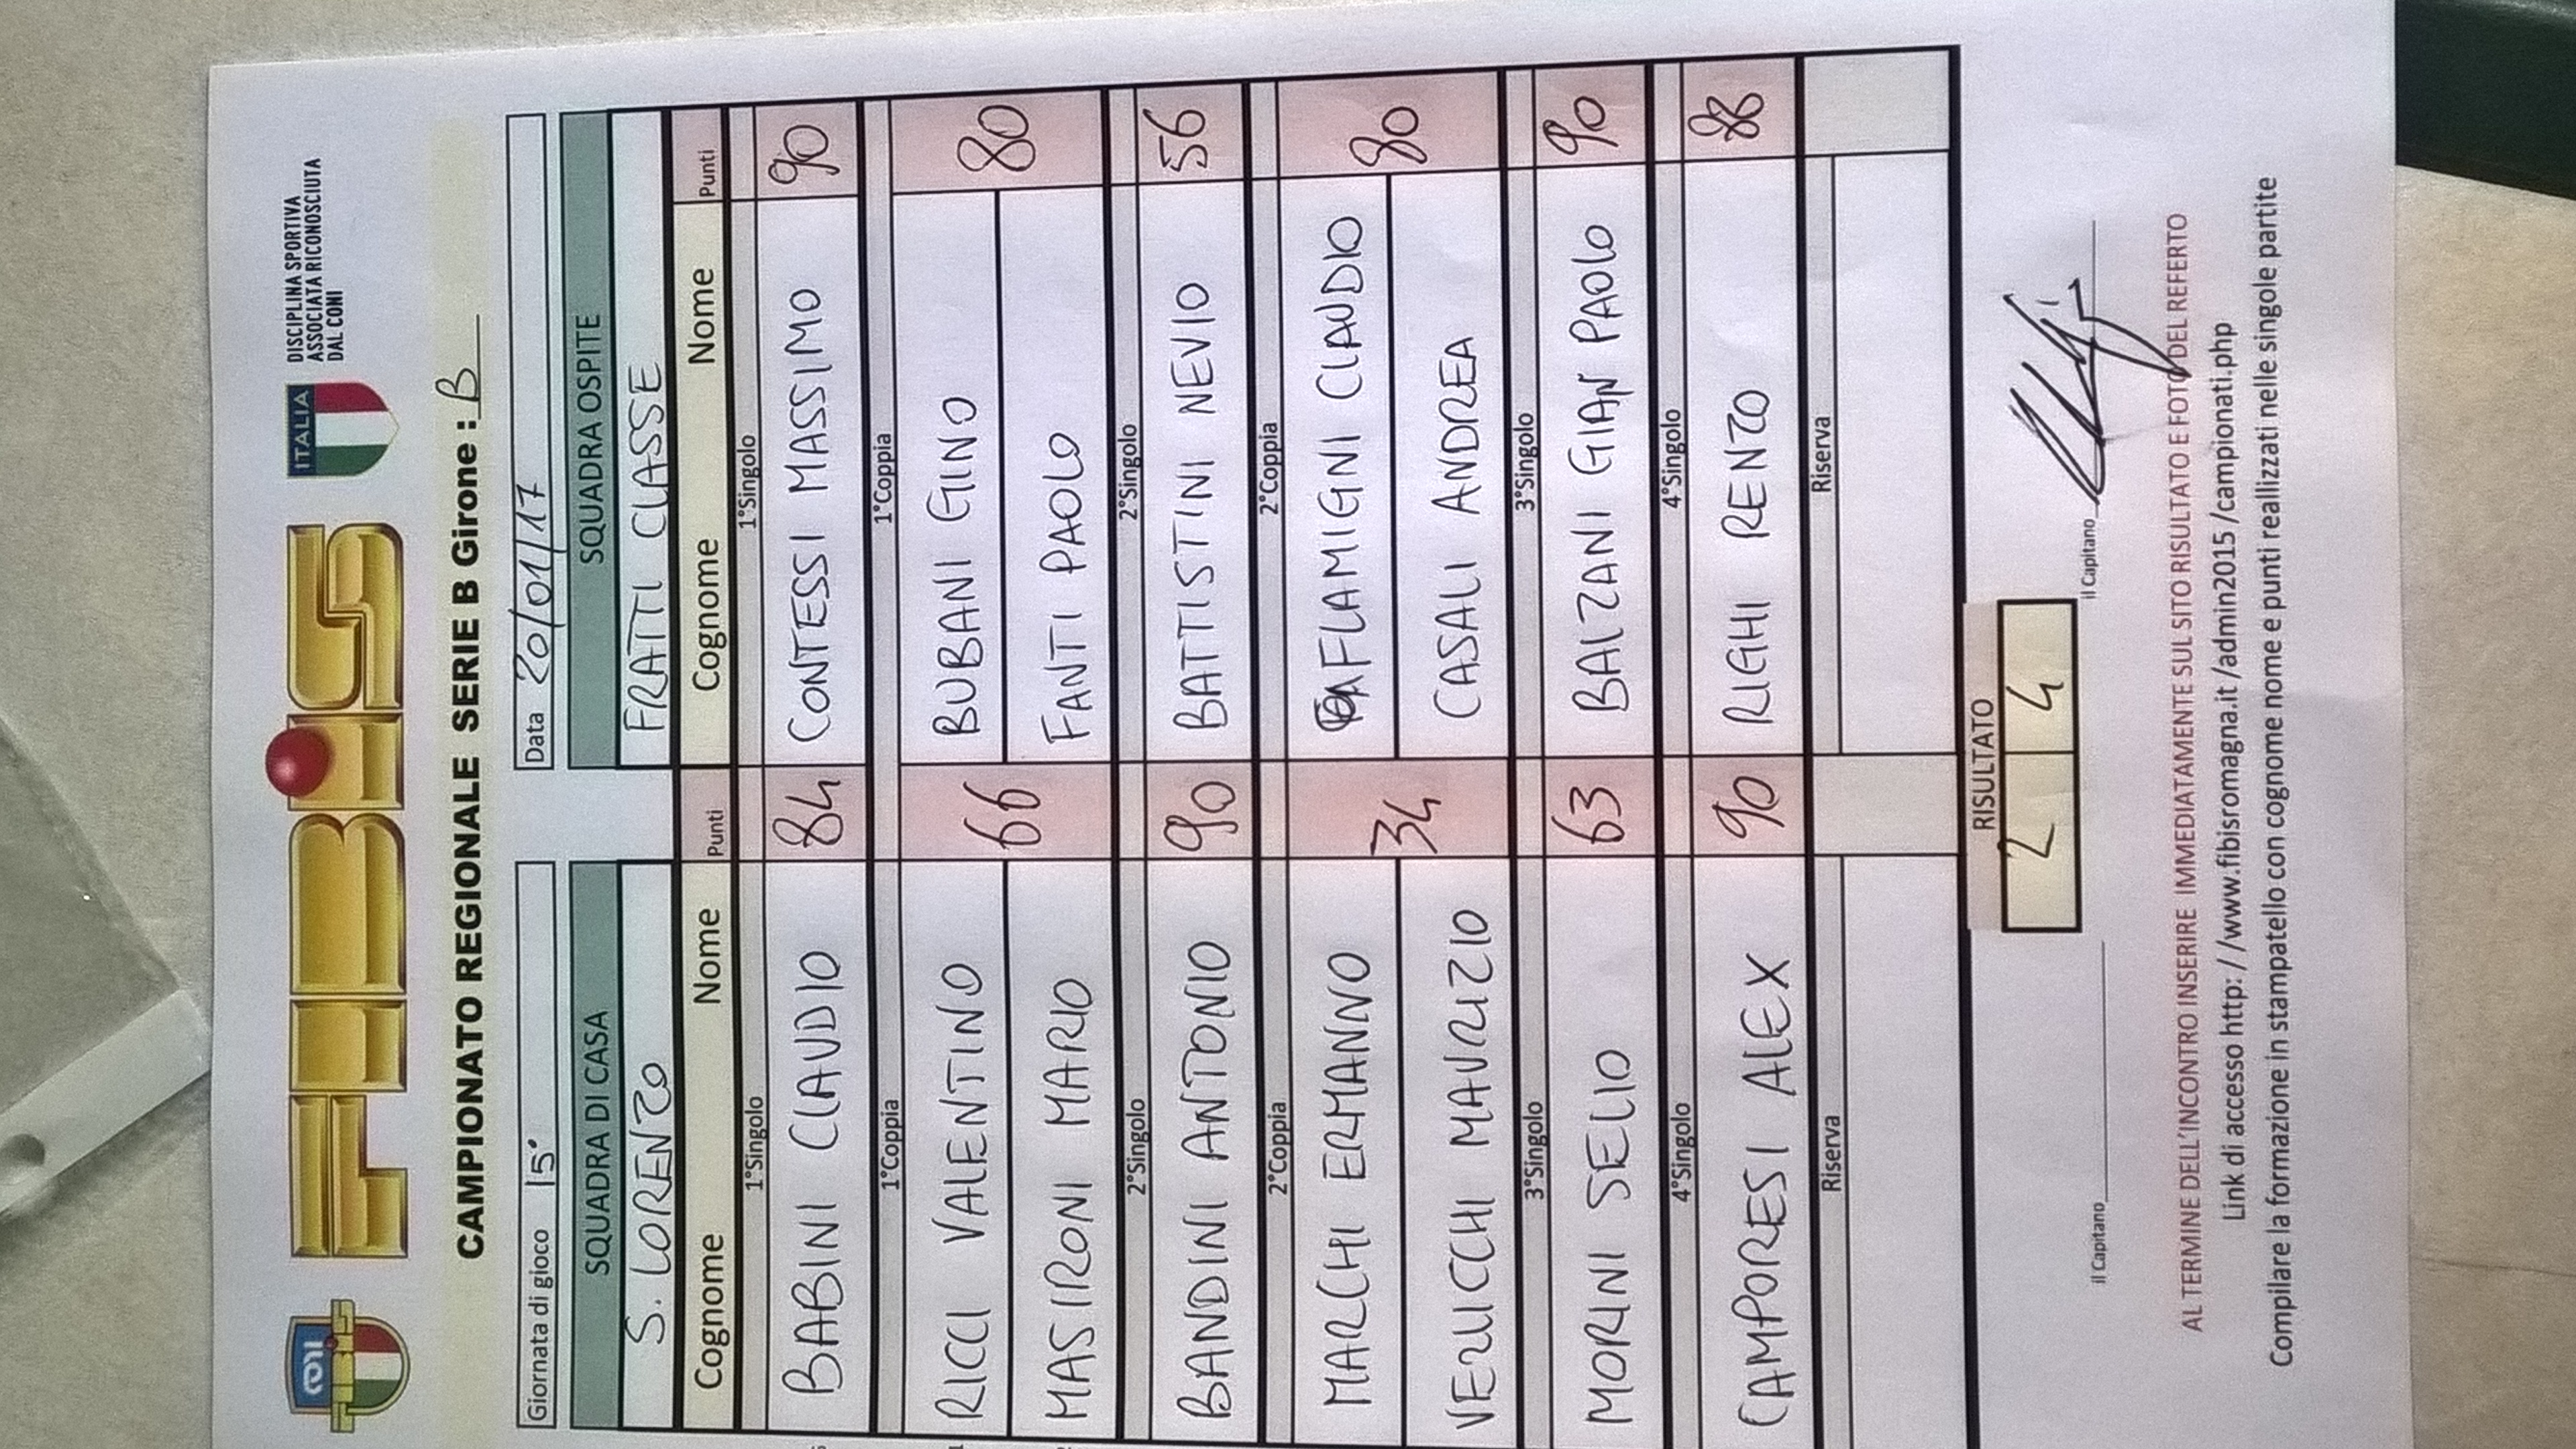 CONI
FIBIS
FIBiS
ITALIA
DISCIPLINA SPORTIVA
ASSOCIATA RICONOSCIUTA
DAL CONI
CAMPIONATO REGIONALE SERIE B Girone : B
Giornata di gioco 15° Data 20/01/17
SQUADRA DI CASA SQUADRA OSPITE
S. LORENZO FRATTI CLASSE
Cognome Nome Punti Cognome Nome Punti
1°Singolo 1°Singolo
BABINI CLAUDIO 84 CONTESSI MASSIMO 90
1°Coppia 1°Coppia
RICCI VALENTINO 66 BUBANI GINO 80
MASIRONI MARIO FANTI PAOLO
2°Singolo 2°Singolo
BANDINI ANTONIO 90 BATTISTINI NEVIO 56
2°Coppia 2°Coppia
MARCHI ERMANNO 34 FLAMIGNI CLAUDIO 80
VERUCCHI MAURIZIO CASALI ANDREA
3°Singolo 3°Singolo
MORINI SELIO 63 BALZANI GIAN PAOLO 90
4°Singolo 4°Singolo
CAMPORESI ALEX 90 RIGHI RENZO 88
Riserva Riserva
RISULTATO
2 4
il Capitano il Capitano
AL TERMINE DELL'INCONTRO INSERIRE IMMEDIATAMENTE SUL SITO RISULTATO E FOTO DEL REFERTO
Link di accesso http: / /www.fibisromagna.it /admin2015 /campionati.php
Compilare la formazione in stampatello con cognome nome e punti reallizzati nelle singole partite